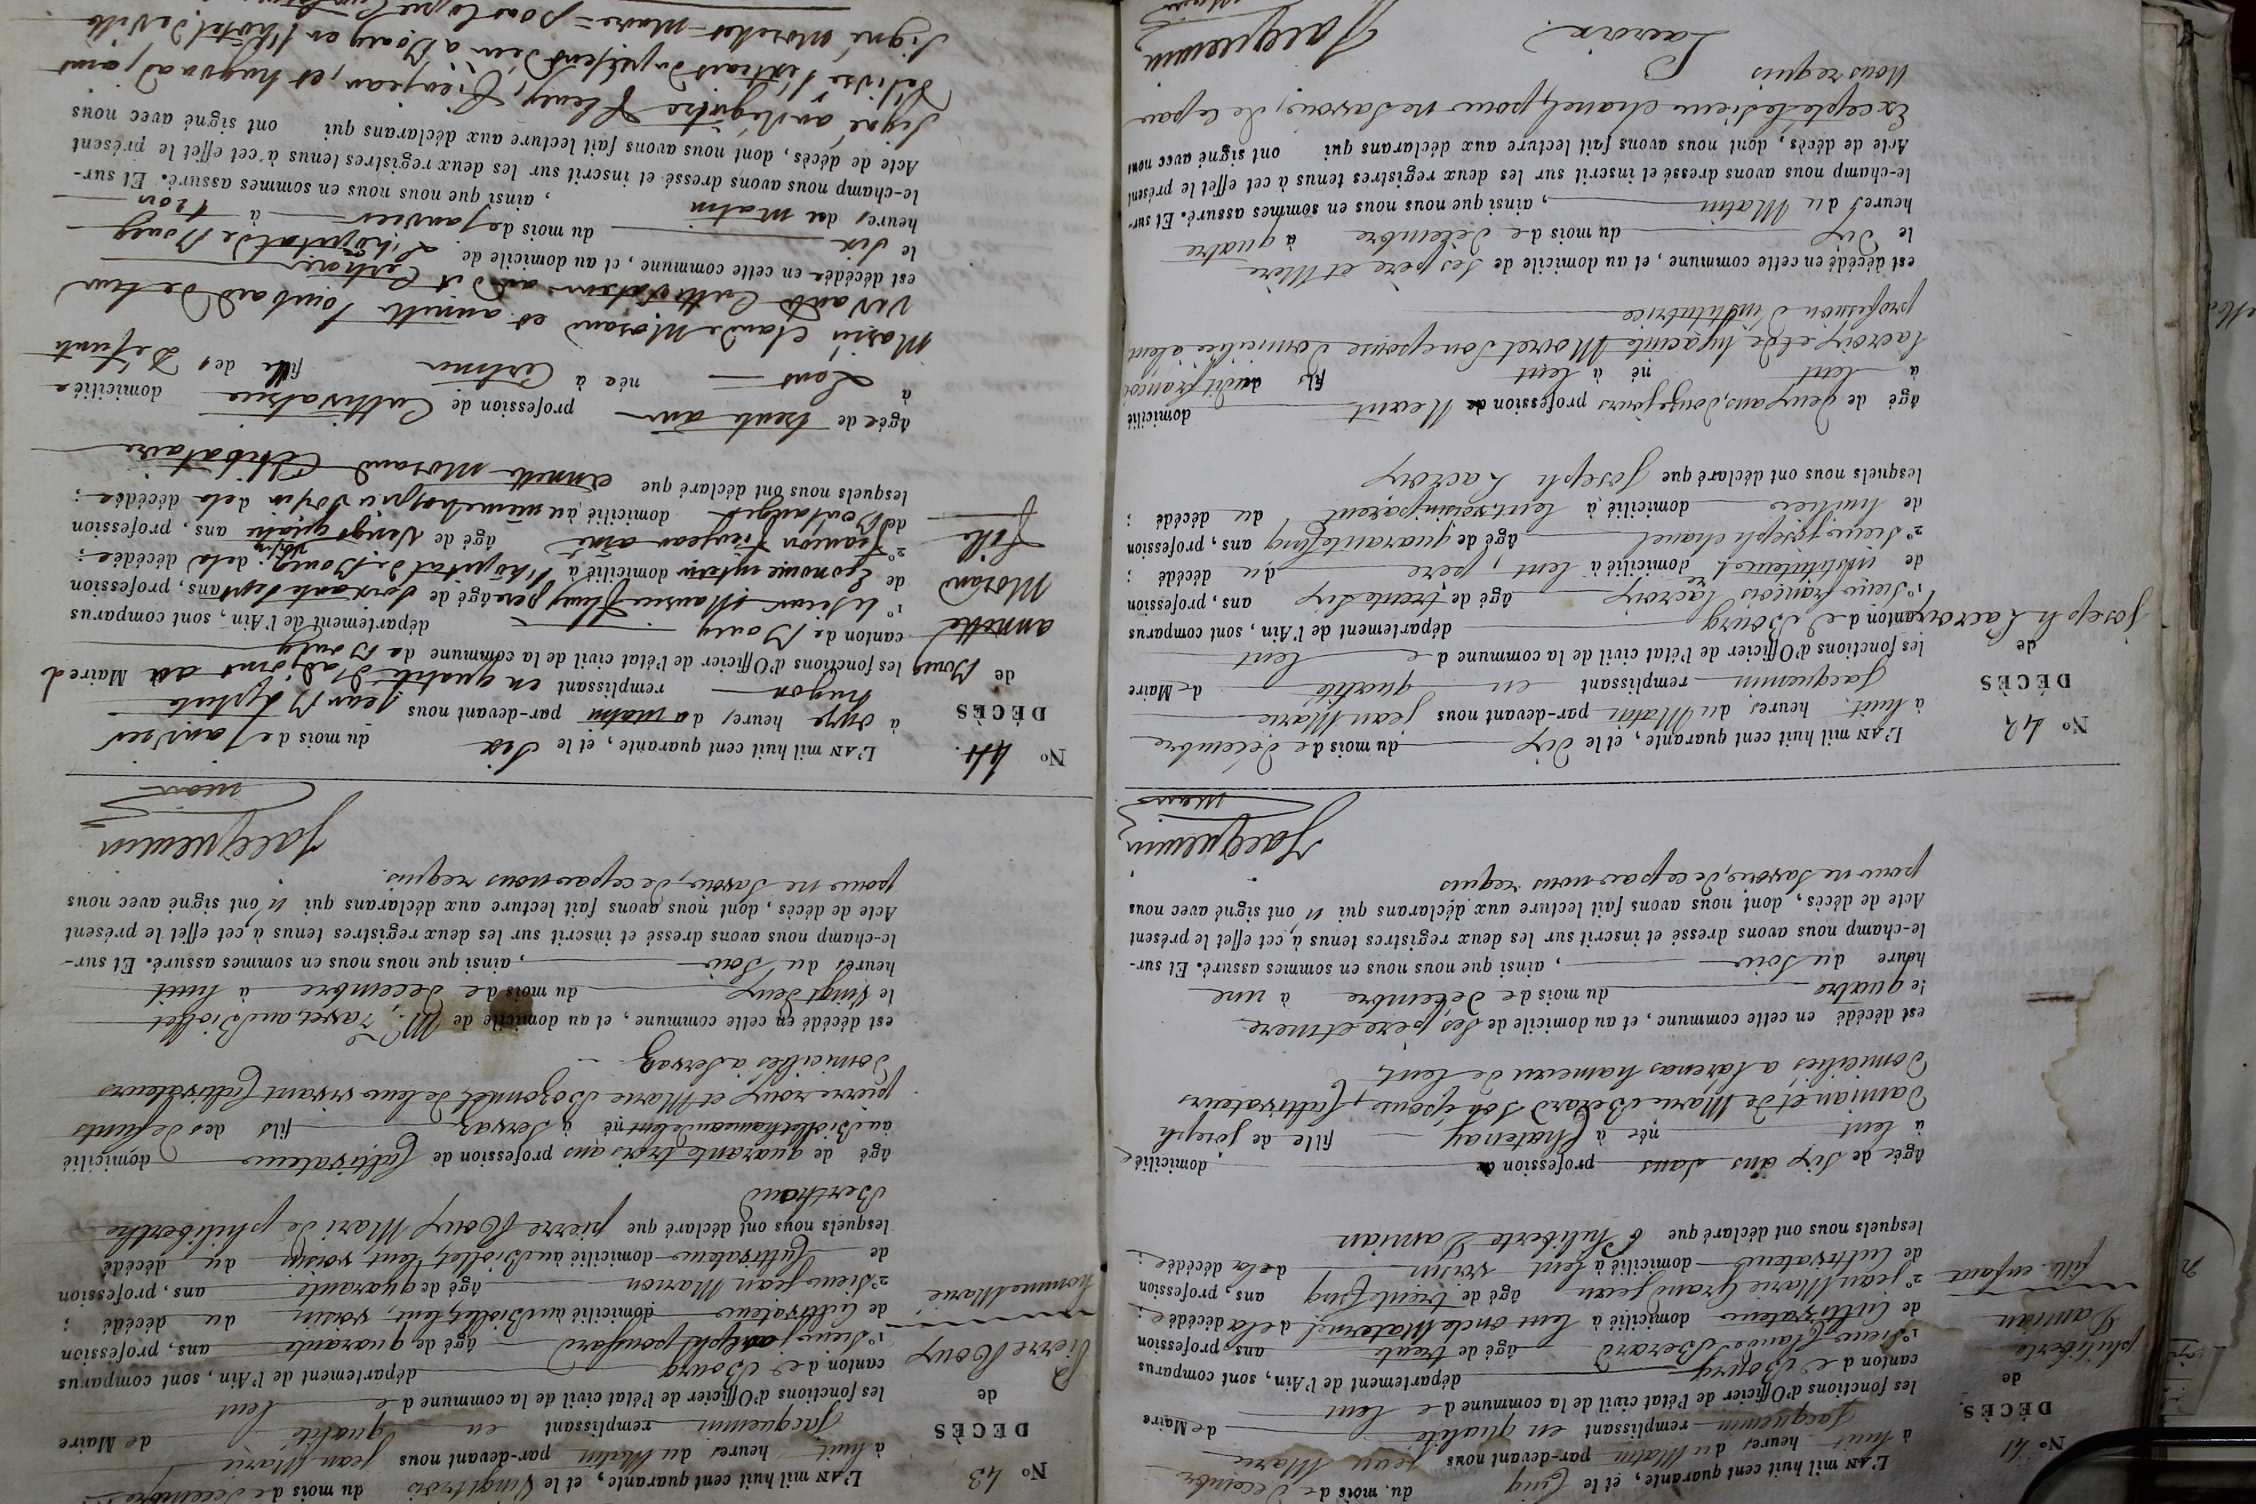 N° 41
DÉCÈS
de
philiberte
Damian
fille enfant
L'AN mil huit cent quarante, et le Cinq du mois de Décembre
à huit heures du Matin par-devant nous jean Marie
Jacquemin remplissant en qualité de Maire
les fonctions d'Officier de l'état civil de la commune de Lent
canton de Bourg département de l'Ain, sont comparus
1° Sieur Claude Berard âgé de trente ans, profession
de Cultivateur domicilié à Lent oncle Maternel de la décédée ;
2° jean Marie Grand jean âgé de trente cinq ans, profession
de Cultivateur domicilié à Lent voisin de la décédée ;
lesquels nous ont déclaré que Philiberte Damian
âgée de six ans sans profession domiciliée
à Lent née à Chatenay fille de joseph
Damian et de Marie Berard son épouse, Cultivateurs
Domiciliés a Lorenas hameau de Lent
est décédée en cette commune, et au domicile de Ses père et mere
le quatre du mois de Décembre à une
heure du Soir , ainsi que nous nous en sommes assuré. Et sur-
le-champ nous avons dressé et inscrit sur les deux registres tenus à cet effet le présent
Acte de décès, dont nous avons fait lecture aux déclarans qui n'ont signé avec nous
pour ne Savoir, de ce par nous requis
Jacquemin
maire
N° 42
DÉCÈS
de
joseph Lacroix
L'AN mil huit cent quarante, et le Dix du mois de Décembre
à huit heures du Matin par-devant nous jean Marie
Jacquemin remplissant en qualité de Maire
les fonctions d'Officier de l'état civil de la commune de Lent
canton de Bourg département de l'Ain, sont comparus
1° Sieur françois Lacroix âgé de trente Six ans, profession
de instituteur domicilié à Lent, père du décédé ;
2° Sieur joseph chanel âgé de quarante cinq ans, profession
de huilier domicilié à Lent, voisin parent du décédé ;
lesquels nous ont déclaré que joseph Lacroix
âgé de deux ans, douze jours profession de Néant domicilié
à Lent né à Lent fils dudit françois
Lacroix et de hyacinte Moiret son épouse domiciliée à Lent
profession d'institutrice
est décédé en cette commune, et au domicile de Ses père et Mère
le Dix du mois de décembre à quatre
heures du Matin , ainsi que nous nous en sommes assuré. Et sur-
le-champ nous avons dressé et inscrit sur les deux registres tenus à cet effet le présent
Acte de décès, dont nous avons fait lecture aux déclarans qui ont signé avec nous
Excepté le dit Sieur chanel, pour ne Savoir, de ce par
Nous requis
Lacroix
Jacquemin
N° 43
DÉCÈS
de
Pierre Roux
homme Marié
L'AN mil huit cent quarante, et le Vingt trois du mois de Décembre
à huit heures du Matin par-devant nous jean Marie
Jacquemin remplissant en qualité de Maire
les fonctions d'Officier de l'état civil de la commune de Lent
canton de Bourg département de l'Ain, sont comparus
1° Sieur ponsard âgé de quarante ans, profession
de Cultivateur domicilié au Biollet, Lent, voisin du décédé ;
2° Sieur jean Marion âgé de quarante ans, profession
de Cultivateur domicilié au Biollet, Lent, voisin du décédé
lesquels nous ont déclaré que pierre Roux Mari de philiberthe
Berthaud
âgé de quarante trois ans profession de Cultivateur domicilié
au Biollet hameau de Lent né à Servaz fils des defunts
pierre roux et Marie Bozonnet de leur vivant Cultivateurs
Domiciliés à Servaz
est décédé en cette commune, et au domicile de au Biollet
le Vingt deux du mois de décembre à huit
heures du Soir , ainsi que nous nous en sommes assuré. Et sur-
le-champ nous avons dressé et inscrit sur les deux registres tenus à cet effet le présent
Acte de décès, dont nous avons fait lecture aux déclarans qui n'ont signé avec nous
pour ne Savoir, de ce par nous requis.
Jacquemin
maire
N° 44
DÉCÈS
de Bourg
annette
Morand
fille
L'AN mil huit cent quarante, et le Six du mois de janvier
à onze heures du matin par-devant nous jean Baptiste
hugon remplissant en qualité d'adjoint au Maire d
les fonctions d'Officier de l'état civil de la commune de Bourg
canton de Bourg département de l'Ain, sont comparus
1° le sieur Maurice fleury père âgé de soixante sept ans, profession
de Econome interim domicilié à l'hôpital de Bourg, voisin de la décédée ;
2° françois Vieujean ainé âgé de Vingt quatre ans, profession
de Boulanger domicilié au même hospice voisin de la décédée ;
lesquels nous ont déclaré que annette Morand Célibataire
âgée de trente ans profession de Cultivatrice domiciliée
à Lent née à Certines fille des Défunts
Marin Claude Morand et annette Joubard de leur
vivant Cultivateurs au dit Certines
est décédée en cette commune, et au domicile de L'hôpital de Bourg
le Six du mois de janvier à trois
heures du matin , ainsi que nous nous en sommes assuré. Et sur-
le-champ nous avons dressé et inscrit sur les deux registres tenus à cet effet le présent
Acte de décès, dont nous avons fait lecture aux déclarans qui ont signé avec nous
Signé au Régistre fleury, Vieujean, et hugon ad, ainsi
délivré l'extrait du présent à Bourg en l'hôtel de ville
Signé maire pour copie